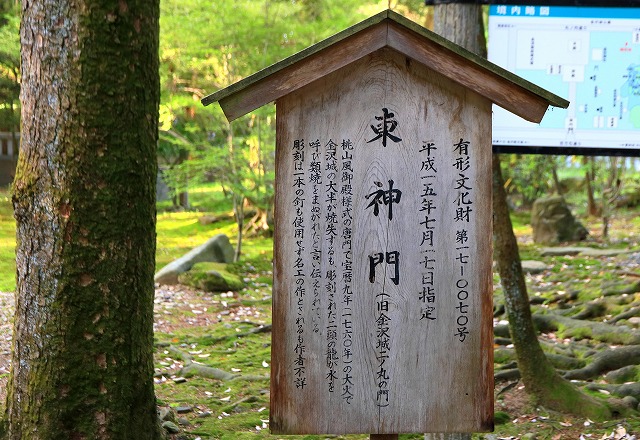 有形文化財 第一七-〇〇七〇号
平成一五年七月一七日指定
東神門
(旧金沢城二ノ丸の門)
桃山風御殿様式の唐門で宝暦九年(一七六〇年)の大火で
金沢城の大半が焼失するも、彫刻された二頭の龍が水を
呼び類焼をまぬがれたと言い伝えられている。
彫刻は一本の釘も使用せず名工の作とされるも作者不詳
境内略図